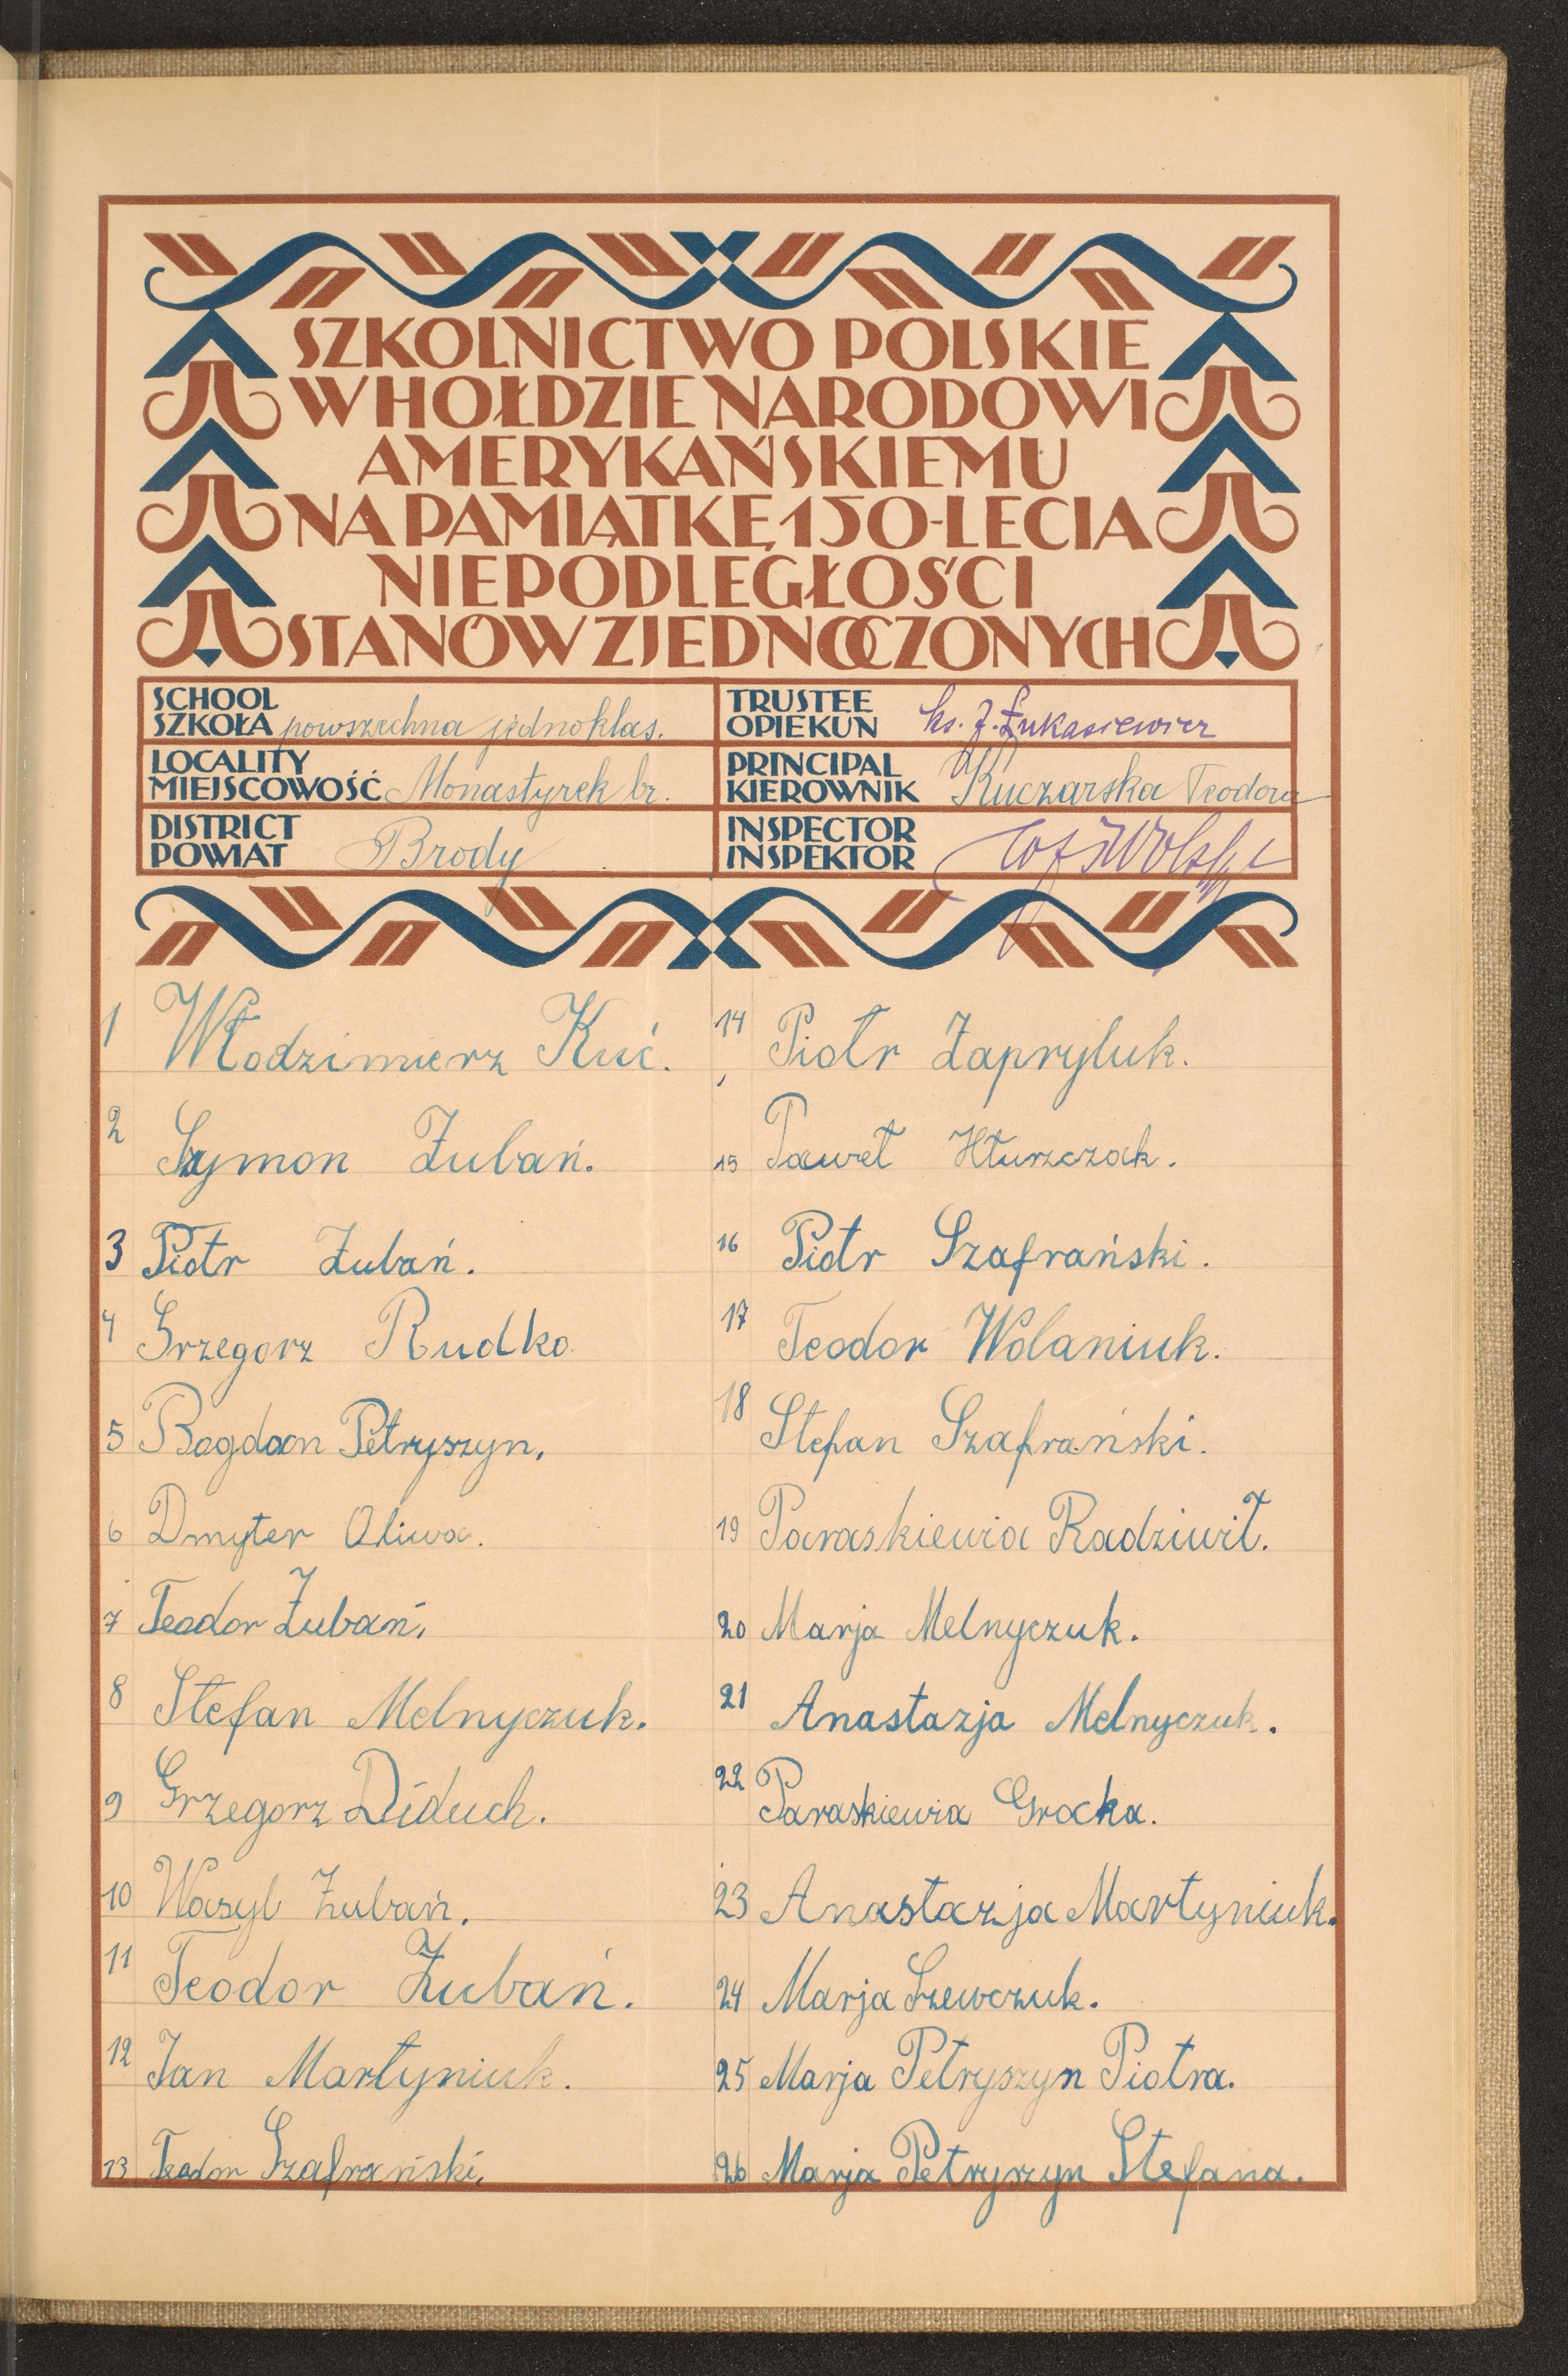 SZKOLNICTWO POLSKIE
W HOŁDZIE NARODOWI
AMERYKAŃSKIEMU
NA PAMIĄTKĘ 150-LECIA
NIEPODLEGŁOŚCI
STANÓW ZJEDNOCZONYCH
SCHOOL
SZKOŁA powszechna jednoklas.
LOCALITY
MIEJSCOWOŚĆ Monastyrek br.
DISTRICT
POWIAT Brody
TRUSTEE
OPIEKUN ks. J. Łukasiewicz
PRINCIPAL
KIEROWNIK Kuczarska Teodora
INSPECTOR
INSPEKTOR
1 Włodzimierz Kuć.
2 Szymon Żubań.
3 Piotr Żubań.
4 Grzegorz Rudko
5 Bogdan Petryszyn.
6 Dmyter Oliwa.
7 Teodor Żubań.
8 Stefan Melnyczuk.
9 Grzegorz Diduch.
10 Wasyl Żubań.
11 Teodor Żubań.
12 Jan Martyniuk.
13 Teodor Szafrański.
14 Piotr Zapryluk.
15 Paweł Hłuszczak.
16 Piotr Szafrański.
17 Teodor Wolaniuk.
18 Stefan Szafrański.
19 Paraskiewia Radziwił.
20 Marja Melnyczuk.
21 Anastazja Melnyczuk.
22 Paraskiewia Grocka.
23 Anastazja Martyniuk.
24 Marja Szewczuk.
25 Marja Petryszyn Piotra.
26 Marja Petryszyn Stefana.